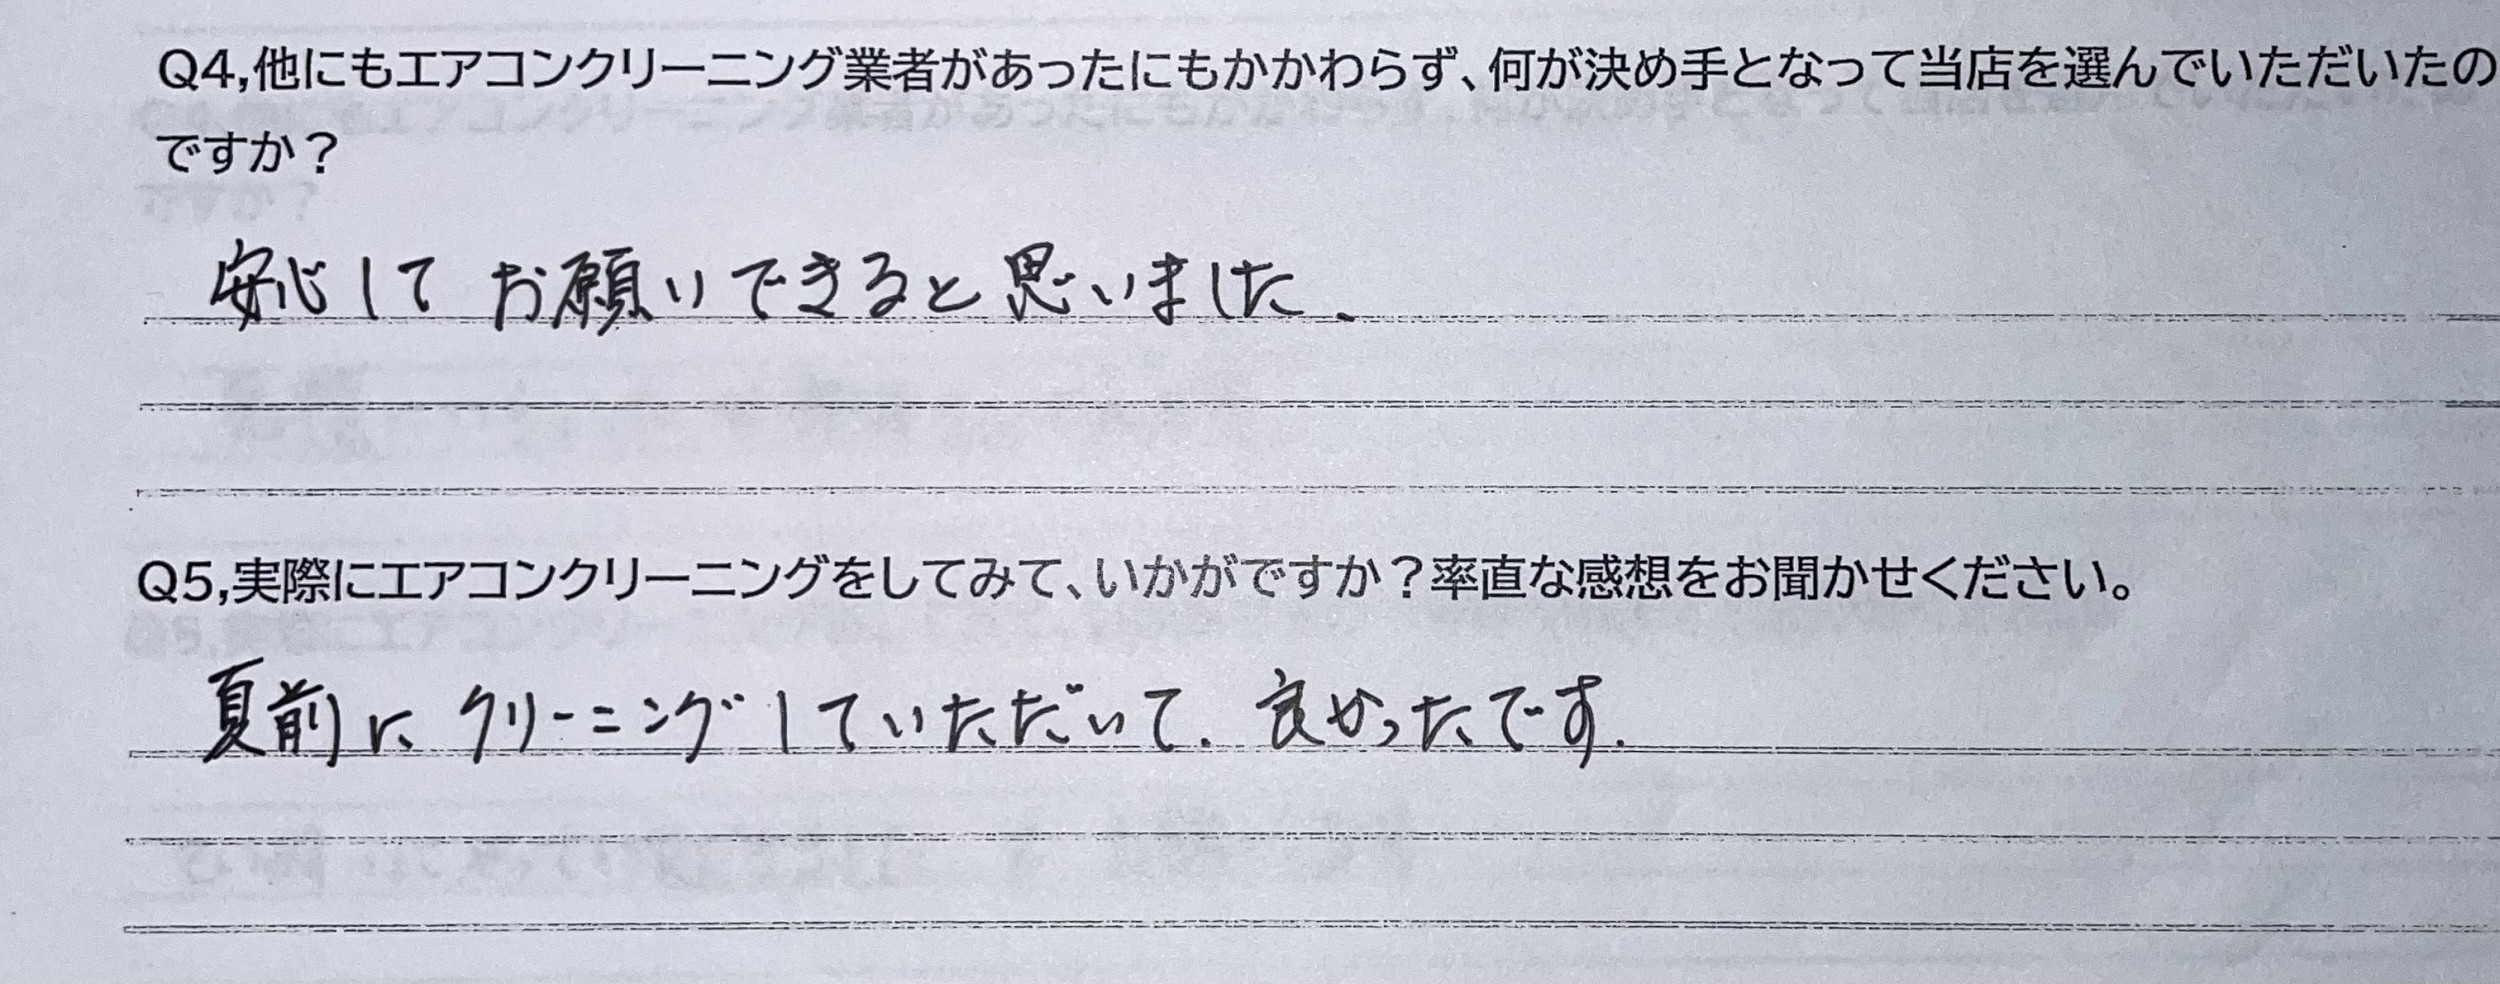 Q4,他にもエアコンクリーニング業者があったにもかかわらず、何が決め手となって当店を選んでいただいたの
ですか？
安心して お願いできると思いました.
Q5,実際にエアコンクリーニングをしてみて、いかがですか？率直な感想をお聞かせください。
夏前に クリーニングしていただいて. 良かったです.